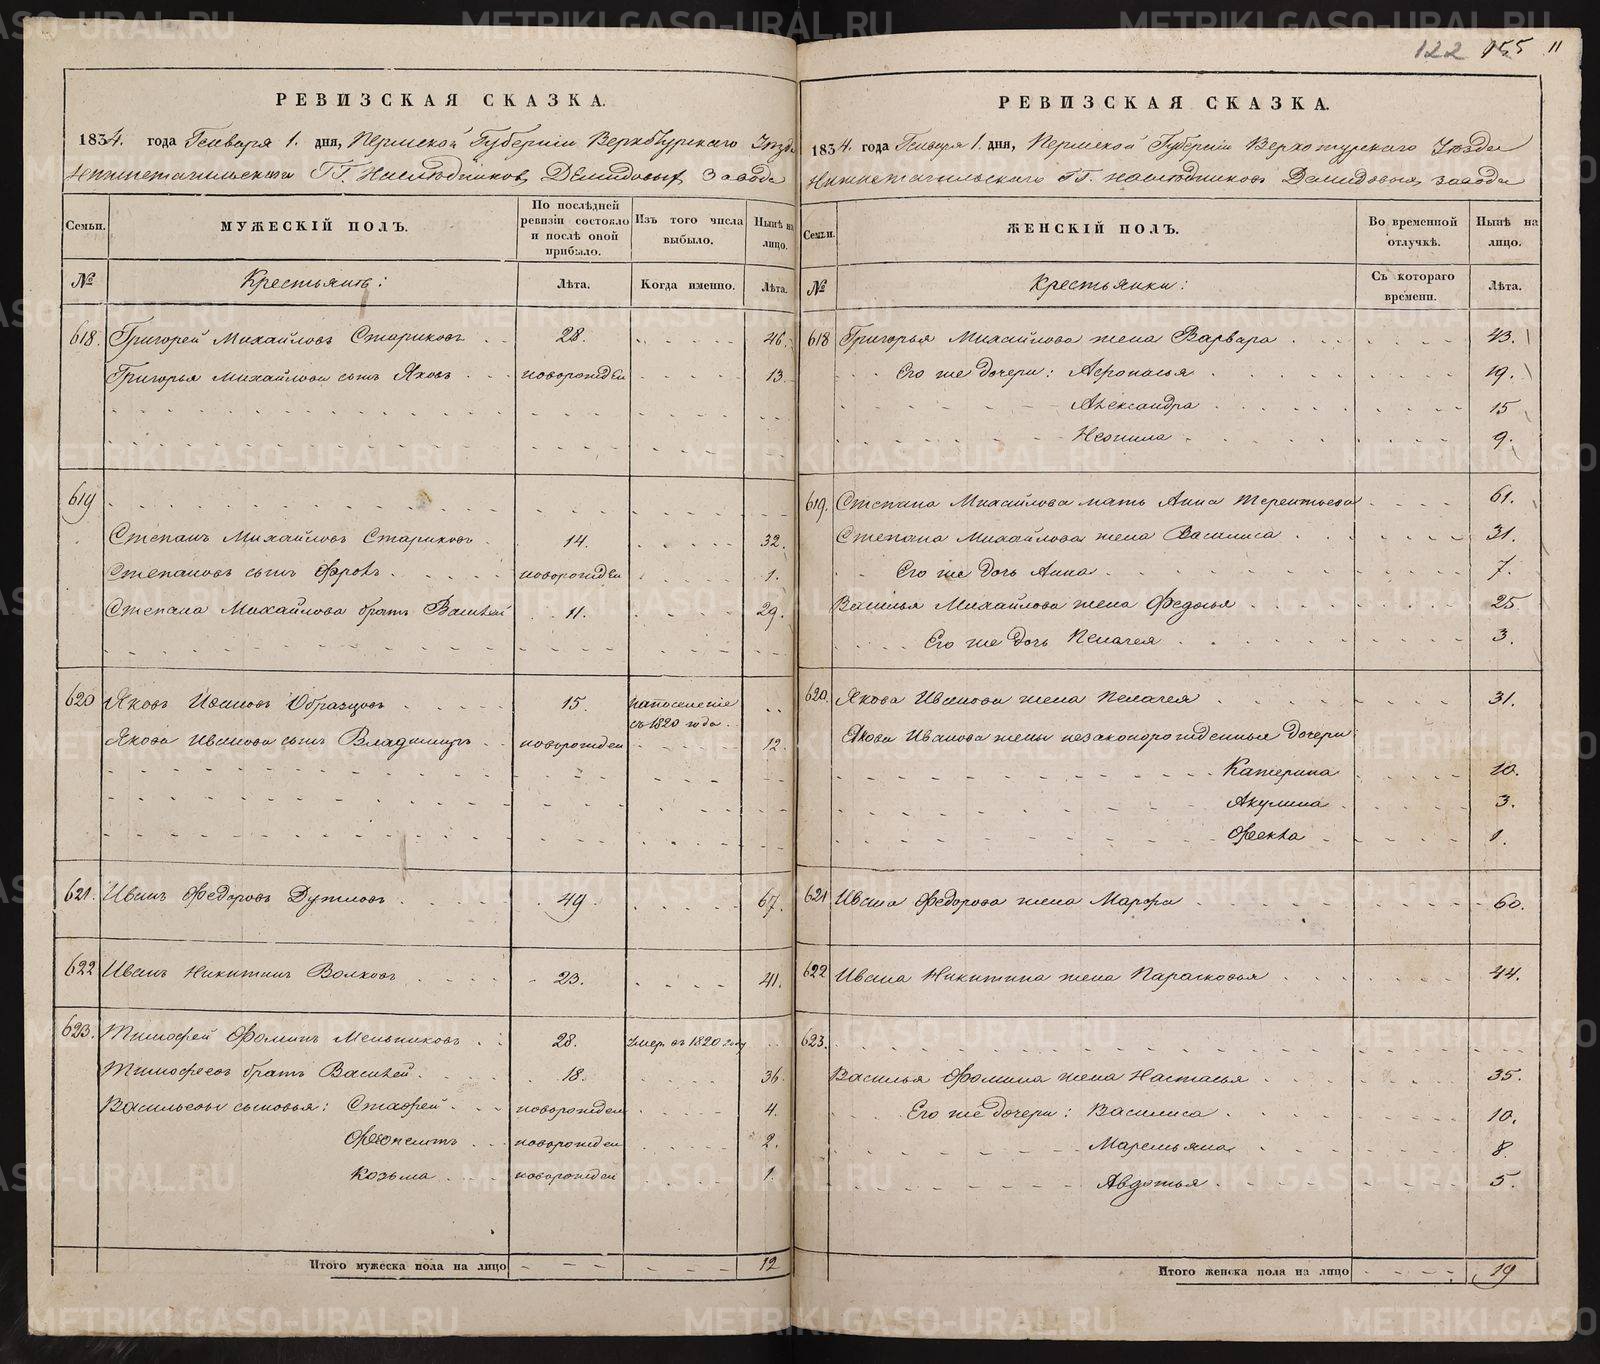 122 155 11
РЕВИЗСКАЯ СКАЗКА.
1834. года Генваря 1. дня, Пермской Губерніи Верхотурскаго Уѣзда
Нижнетагильскаго ГГ. Наслѣдниковъ Демидовыхъ завода
Семьи. МУЖЕСКІЙ ПОЛЪ. По послѣдней ревизіи состояло и послѣ оной прибыло. Изъ того числа выбыло. Нынѣ на лицо.
№ Крестьянъ: Лѣта. Когда именно. Лѣта.
618. Григорей Михайловъ Стариковъ 28. 46.
Григорья Михайлова сынъ Яковъ новорожден 13.
619
Степанъ Михайловъ Стариковъ 14. 32.
Степановъ сынъ Фролъ новорожден 1.
Степана Михайлова братъ Василей 11. 29.
620 Яковъ Ивановъ Образцовъ 15. на поселеніе
съ 1820 года.
Якова Иванова сынъ Владимиръ новорожден 12.
621. Иванъ Федоровъ Дутловъ 49 67.
622 Иванъ Никитинъ Волковъ 23. 41.
623. Тимофей Фоминъ Мельниковъ 28. умер. въ 1820 году
Тимофеевъ братъ Василей 18. 36
Васильевы сыновья: Стафей новорожден 4.
Феопемптъ новорожден 2.
Козьма новорожден 1.
Итого мужеска пола на лицо 12
РЕВИЗСКАЯ СКАЗКА.
1834. года Генваря 1. дня, Пермской Губерніи Верхотурскаго Уѣзда
Нижнетагильскаго ГГ. Наслѣдниковъ Демидовыхъ завода
Семьи. ЖЕНСКІЙ ПОЛЪ. Во временной отлучкѣ. Нынѣ на лицо.
№ Крестьянки: Съ котораго времени. Лѣта.
618 Григорья Михайлова жена Варвара 43.
Его же дочери: Афонасья 19.
Александра 15
Неонила 9.
619. Степана Михайлова мать Анна Терентьева 61.
Степана Михайлова жена Василиса 31.
Его же дочь Анна 7.
Василья Михайлова жена Федосья 25
Его же дочь Пелагея 3.
620. Якова Иванова жена Пелагея 31.
Якова Иванова жены незаконорожденныя дочери
Катерина 10.
Акулина 3.
Фекла 1.
621 Ивана Федорова жена Марфа 60.
622 Ивана Никитина жена Парасковья 44.
623.
Василья Фомина жена Настасья 35.
Его же дочери: Василиса 10.
Маремьяна 8
Авдотья 5.
Итого женска пола на лицо 19
METRIKI.GASO-URAL.RU